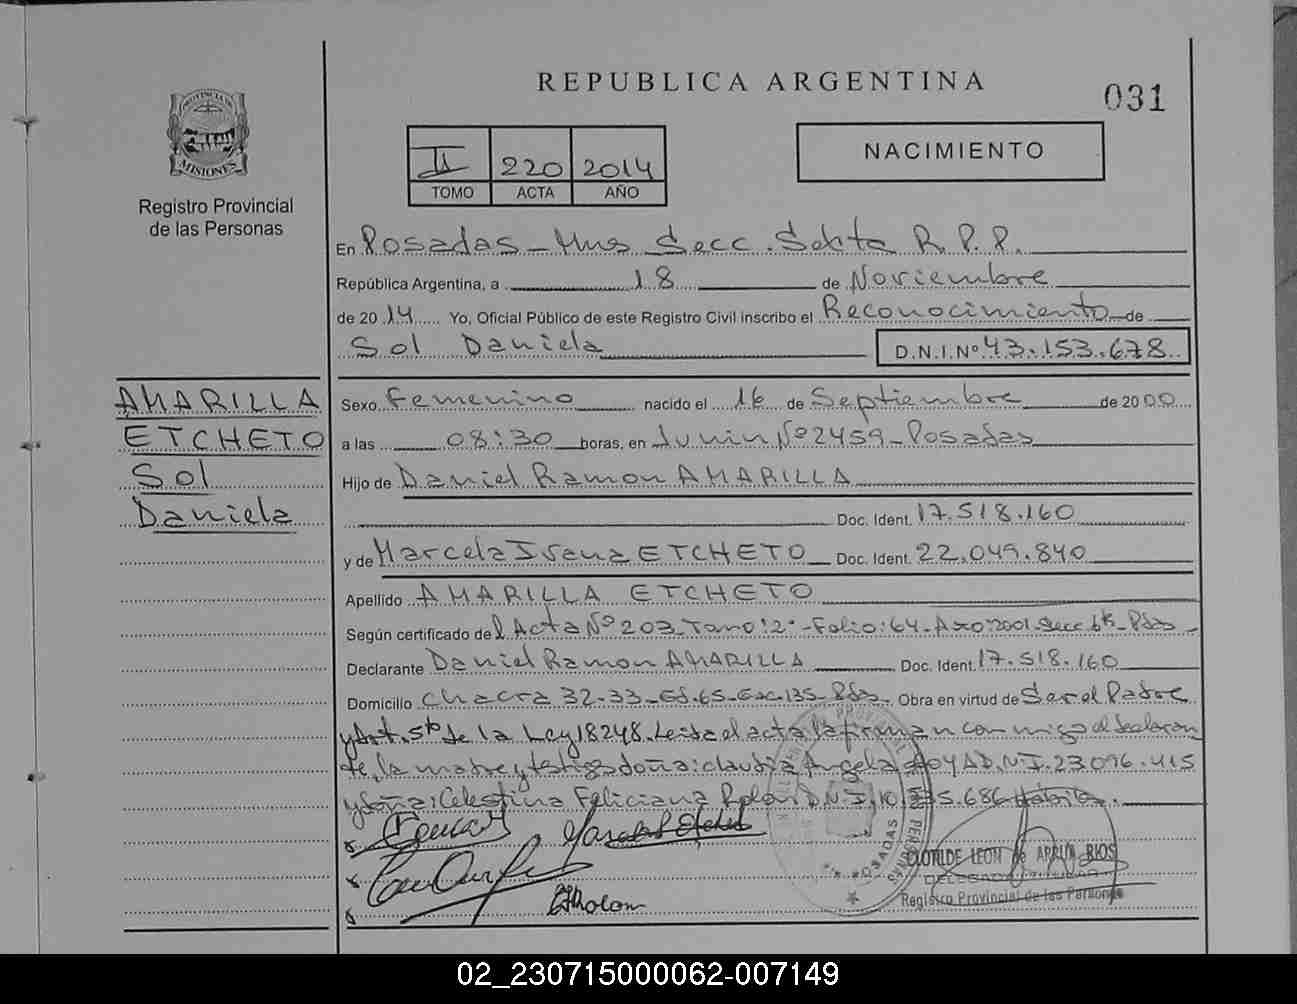 REPUBLICA ARGENTINA
031
PROVINCIA DE
MISIONES
Registro Provincial
de las Personas
II 220 2014
TOMO ACTA AÑO
NACIMIENTO
En Posadas - Mnes Secc. Sexta R.P.P.
República Argentina, a 18 de Noviembre
de 2014 Yo, Oficial Público de este Registro Civil inscribo el Reconocimiento de
Sol Daniela D.N.I.Nº 43.153.678
AMARILLA
ETCHETO
Sol
Daniela
Sexo Femenino nacido el 16 de Septiembre de 2000
a las 08:30 horas, en Junin Nº 2459 - Posadas
Hijo de Daniel Ramon AMARILLA
Doc. Ident. 17.518.160
y de Marcela Ivana ETCHETO Doc. Ident. 22.049.840
Apellido AMARILLA ETCHETO
Según certificado del Acta Nº 203 - Tomo: 2º - Folio: 64 - Año: 2001 - Secc 6ta - Pdas
Declarante Daniel Ramon AMARILLA Doc. Ident. 17.518.160
Domicilio Chacra 32-33 - Ed. 65 - Esc. 135 - Pdas. Obra en virtud de Ser el Padre
y Art. 5to de la Ley 18248. Leida el acta la firman con migo el declaran
te, la madre y testigos doña: Claudia Angela D.N.I. 23.096.415
y doña: Celestina Feliciana D.N.I. 10 5.686
CLOTILDE LEON de ARRUA RIOS
Registro Provincial de las Personas
POSADAS
02_230715000062-007149